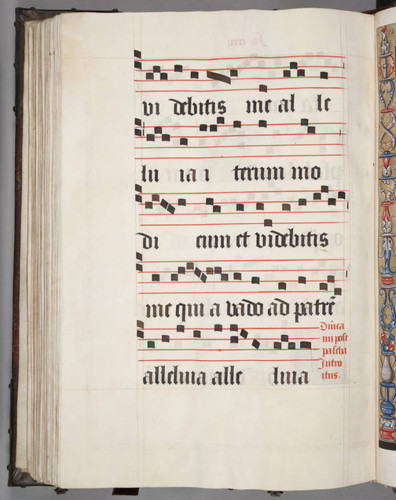 vi debitis me al le
lu ia i terum mo
di cum et videbitis
me qui a vado ad patrē
alleluia alle luia
Dn̄ica
iiii post
pascha
Intro
itus.